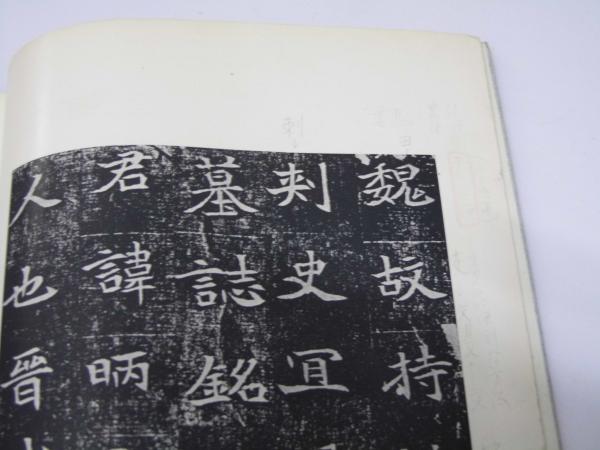 魏故持
刾史冝
墓誌銘
君諱昞
人也晉